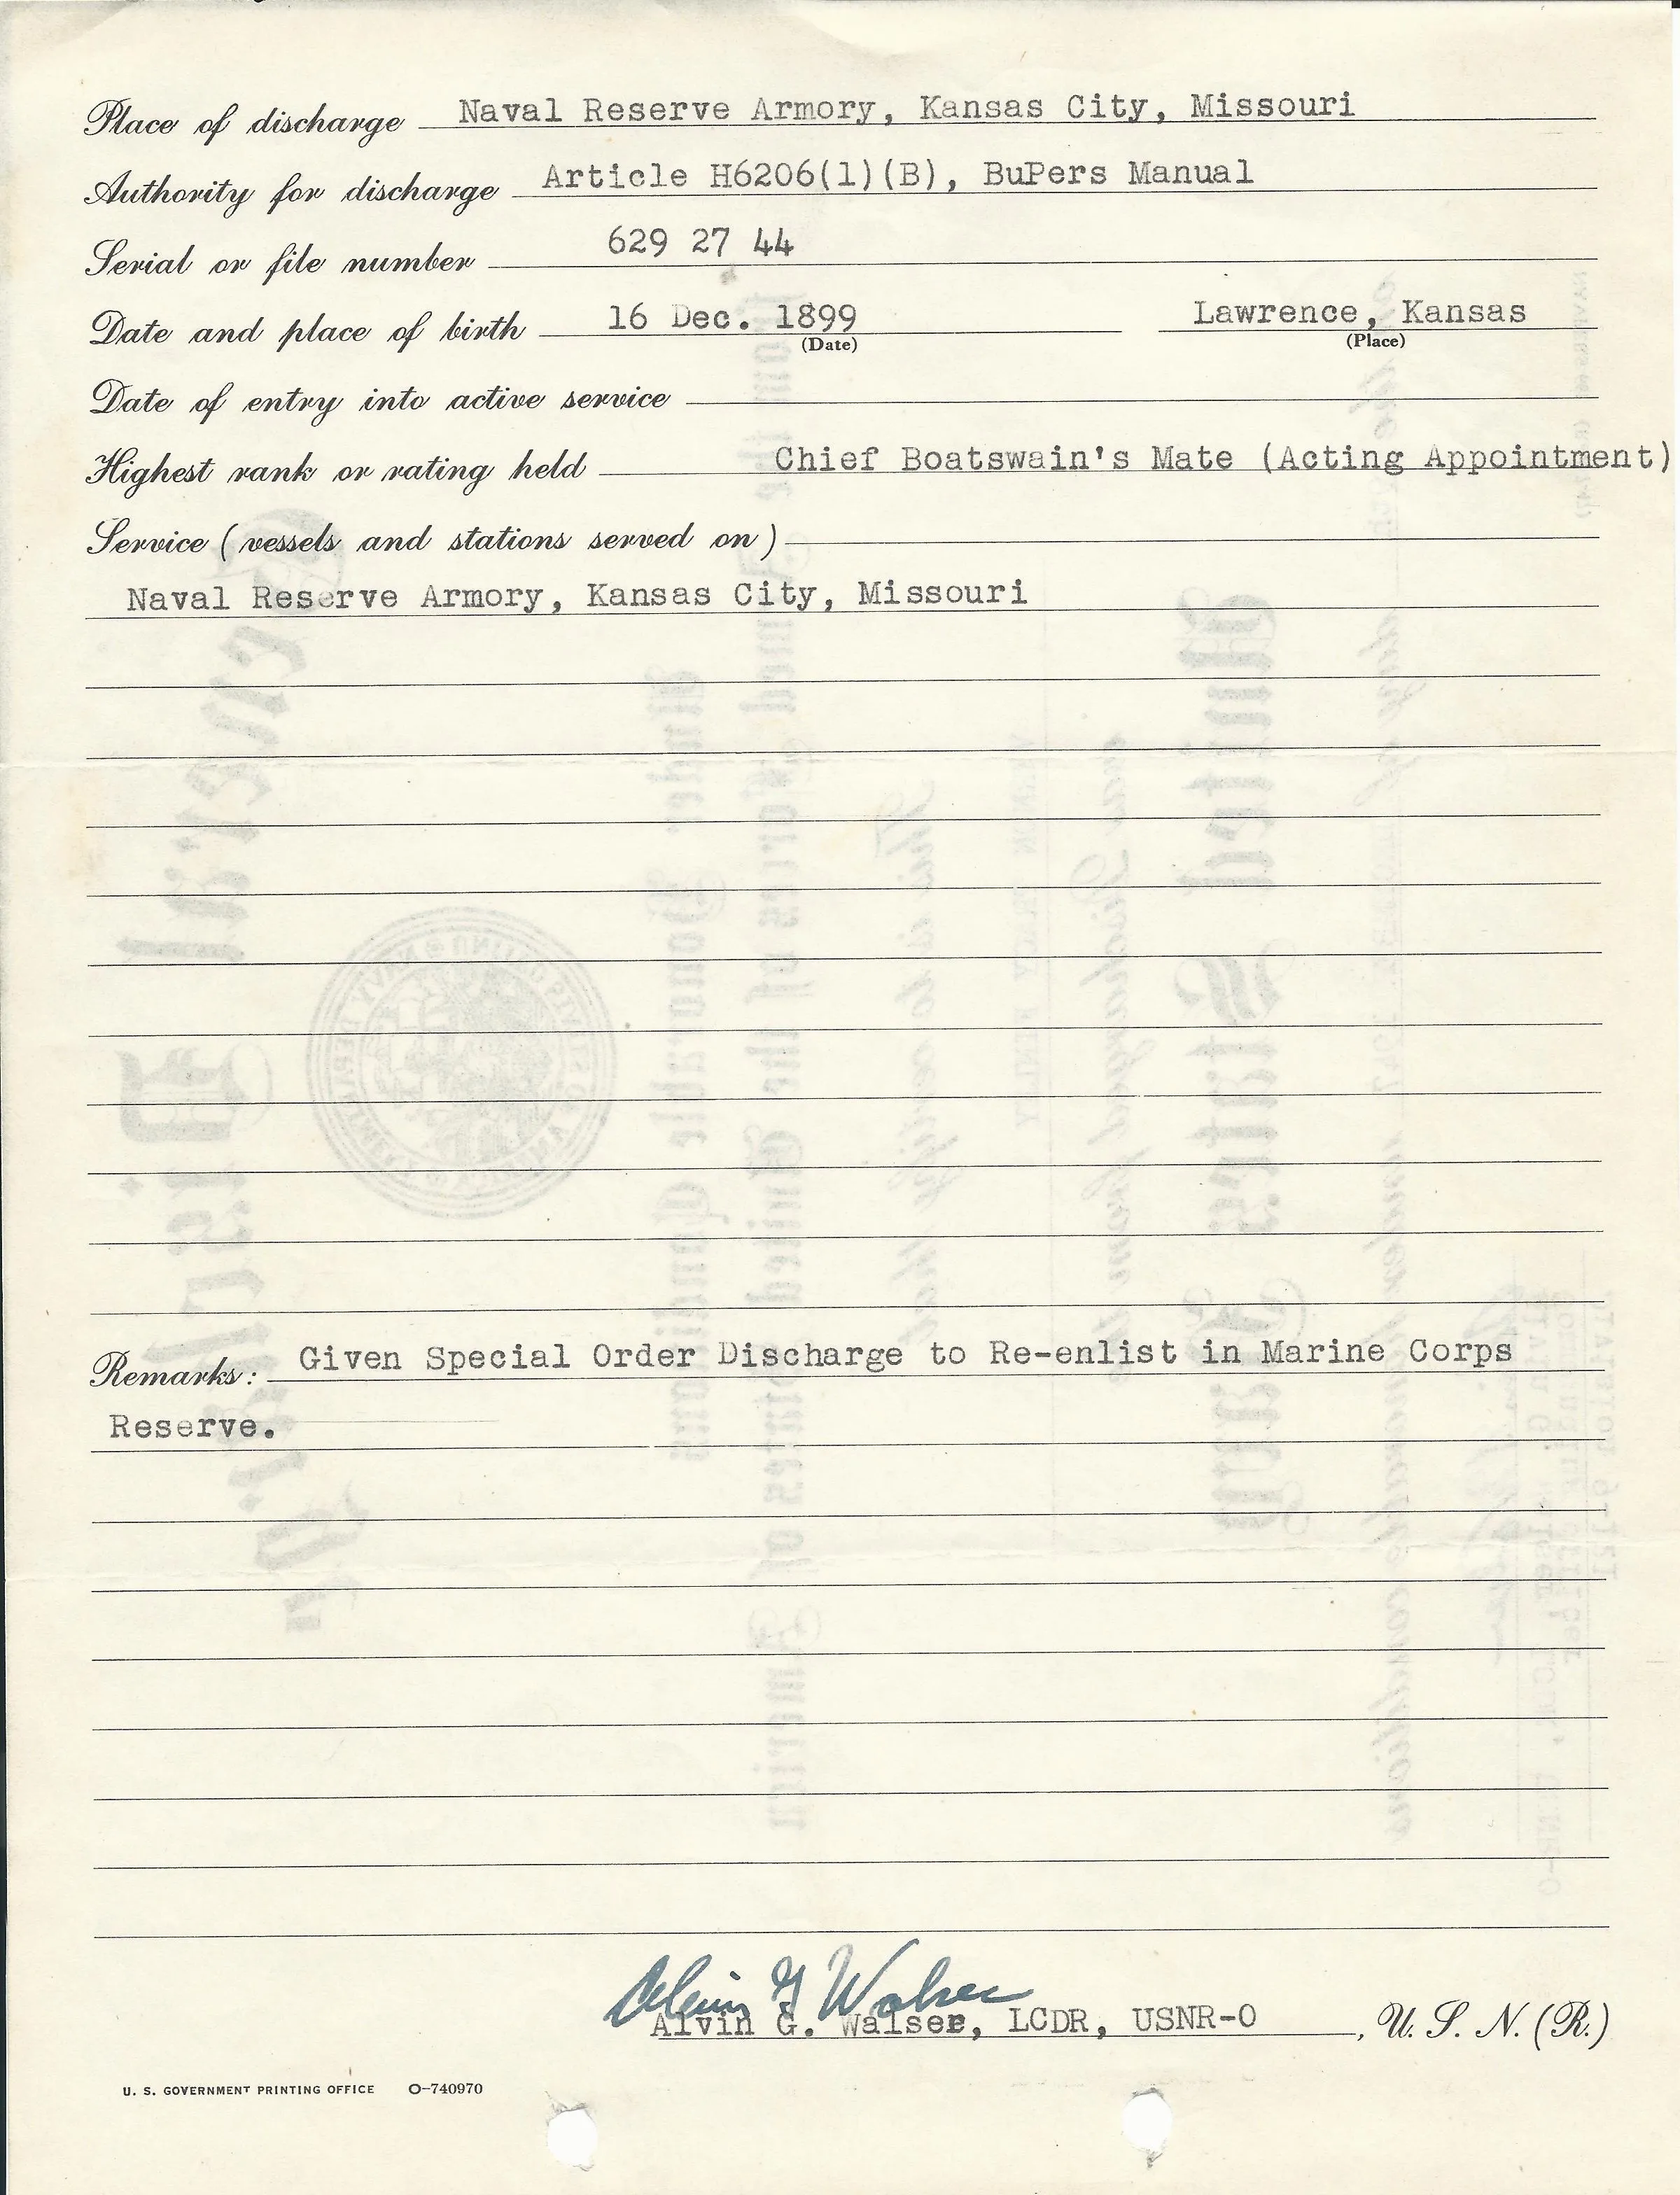 Place of discharge Naval Reserve Armory, Kansas City, Missouri
Authority for discharge Article H6206(1)(B), BuPers Manual
Serial or file number 629 27 44
Date and place of birth 16 Dec. 1899 Lawrence, Kansas
(Date) (Place)
Date of entry into active service
Highest rank or rating held Chief Boatswain's Mate (Acting Appointment)
Service (vessels and stations served on)
Naval Reserve Armory, Kansas City, Missouri
Remarks: Given Special Order Discharge to Re-enlist in Marine Corps
Reserve.
Alvin G Walser
Alvin G. Walser, LCDR, USNR-O , U. S. N. (R.)
U. S. GOVERNMENT PRINTING OFFICE O-740970